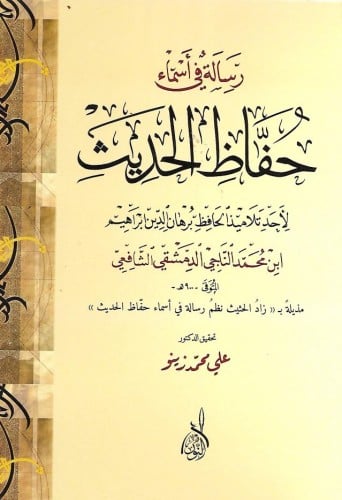 رسالة في أسماء
حُفَّاظِ الحَدِيثْ
لأحد تلاميذ الحافظ برهان الدين إبراهيم
ابن محمد الناجي الدمشقي الشافعي
المتوفى ٩٠٠هـ-
مذيلة بـ « زادُ الحثيث نظمُ رسالة في أسماء حفّاظ الحديث »
تحقيق الدكتور
علي محمد زينو